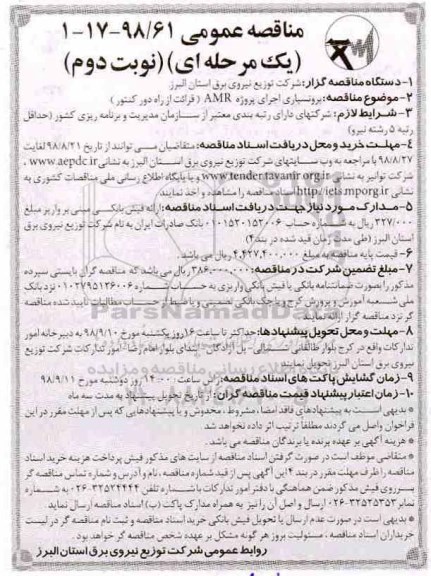 مناقصه عمومی ۹۸/۶۱-۱۷-۱
(یک مرحله ای) (نوبت دوم)
۱-دستگاه مناقصه گزار: شرکت توزیع نیروی برق استان البرز
۲-موضوع مناقصه: برونسپاری اجرای پروژه AMR ( قرائت از راه دور کنتور )
۳- شرایط لازم: شرکتهای دارای رتبه بندی معتبر از سازمان مدیریت و برنامه ریزی کشور (حداقل
رتبه ۵ رشته نیرو)
۴-مهلت خرید و محل دریافت اسناد مناقصه: متقاضیان می توانند از تاریخ ۹۸/۸/۲۱ لغایت
۹۸/۸/۲۷ با مراجعه به وب سایتهای شرکت توزیع نیروی برق استان البرز به نشانی www.aepdc.ir ،
شرکت توانیر به نشانی www.tender.tavanir.org.ir و یا پایگاه اطلاع رسانی ملی مناقصات کشوری به
نشانی http://iets.mporg.ir اسناد مناقصه را مشاهده و اخذ نمایند
۵-مدارک مورد نیاز جهت دریافت اسناد مناقصه: ارائه فیش بانکی مبنی بر واریز مبلغ
۳۲۷/۰۰۰ ریال به شماره حساب ۰۱۰۱۵۲۰۱۵۲۰۰۶ بانک صادرات ایران به نام شرکت توزیع نیروی برق
استان البرز (طی مدت زمان قید شده در بند۴)
۶- قیمت پایه مناقصه به مبلغ ۴,۴۲۷,۴۰۰,۰۰۰ ریال می باشد.
۷-مبلغ تضمین شرکت در مناقصه: ۳۸۶,۰۰۰,۰۰۰ ریال می باشد که مناقصه گران بایستی سپرده
مذکور را بصورت ضمانتنامه بانکی یا فیش بانکی واریزی به حساب شماره ۰۱۰۲۷۹۵۱۲۶۰۰۶ نزد بانک
ملی شعبه آموزش و پرورش کرج و یا چک بانکی تضمینی و یا ضبط از حساب مطالبات تایید شده مناقصه
گر نزد مناقصه گزار ارائه نمایند
۸-مهلت و محل تحویل پیشنهادها: حداکثر تا ساعت ۱۶ روز یکشنبه مورخ ۹۸/۹/۱۰ به دبیرخانه امور
تدارکات واقع در کرج بلوار طالقانی شمالی - پل آزادگان - ابتدای بلوار امام رضا - امور تدارکات شرکت توزیع
نیروی برق استان البرز تحویل نمایند
۹-زمان گشایش پاکت های اسناد مناقصه: راس ساعت ۱۴:۰۰ روز دوشنبه مورخ ۹۸/۹/۱۱
۱۰-زمان اعتبار پیشنهاد قیمت مناقصه گران: از تاریخ تحویل پیشنهاد به مدت سه ماه
* بدیهی است به پیشنهادهای فاقد امضا، مشروط، مخدوش و یا پیشنهادهایی که پس از مهلت مقرر در این
فراخوان واصل می گردند مطلقا ترتیب اثر داده نخواهد شد
* هزینه آگهی بر عهده برنده یا برندگان مناقصه می باشد.
* متقاضی موظف است در صورت گرفتن اسناد مناقصه از سایت های مذکور فیش پرداخت هزینه خرید اسناد
مناقصه را ظرف مهلت مقرر در بند ۴ این آگهی پس از قید شماره مناقصه ، نام و آدرس و شماره تماس مناقصه گر
بر روی فیش مذکور ضمن هماهنگی با دفتر امور تدارکات با شماره تلفن ۳۲۵۲۴۴۴۴-۰۲۶ به شماره
نمابر ۳۲۵۲۵۳۵۲-۰۲۶ ارسال و اصل آن را نیز به همراه مدارک پاکت (ب) اسناد مناقصه ارسال نماید
* بدیهی است در صورت عدم ارسال یا تحویل فیش بانکی خرید اسناد مناقصه و ثبت نام مناقصه گر در لیست
خریداران اسناد مناقصه ، مسئولیت بروز هر گونه مشکل بر عهده شخص مناقصه گر خواهد بود.
روابط عمومی شرکت توزیع نیروی برق استان البرز